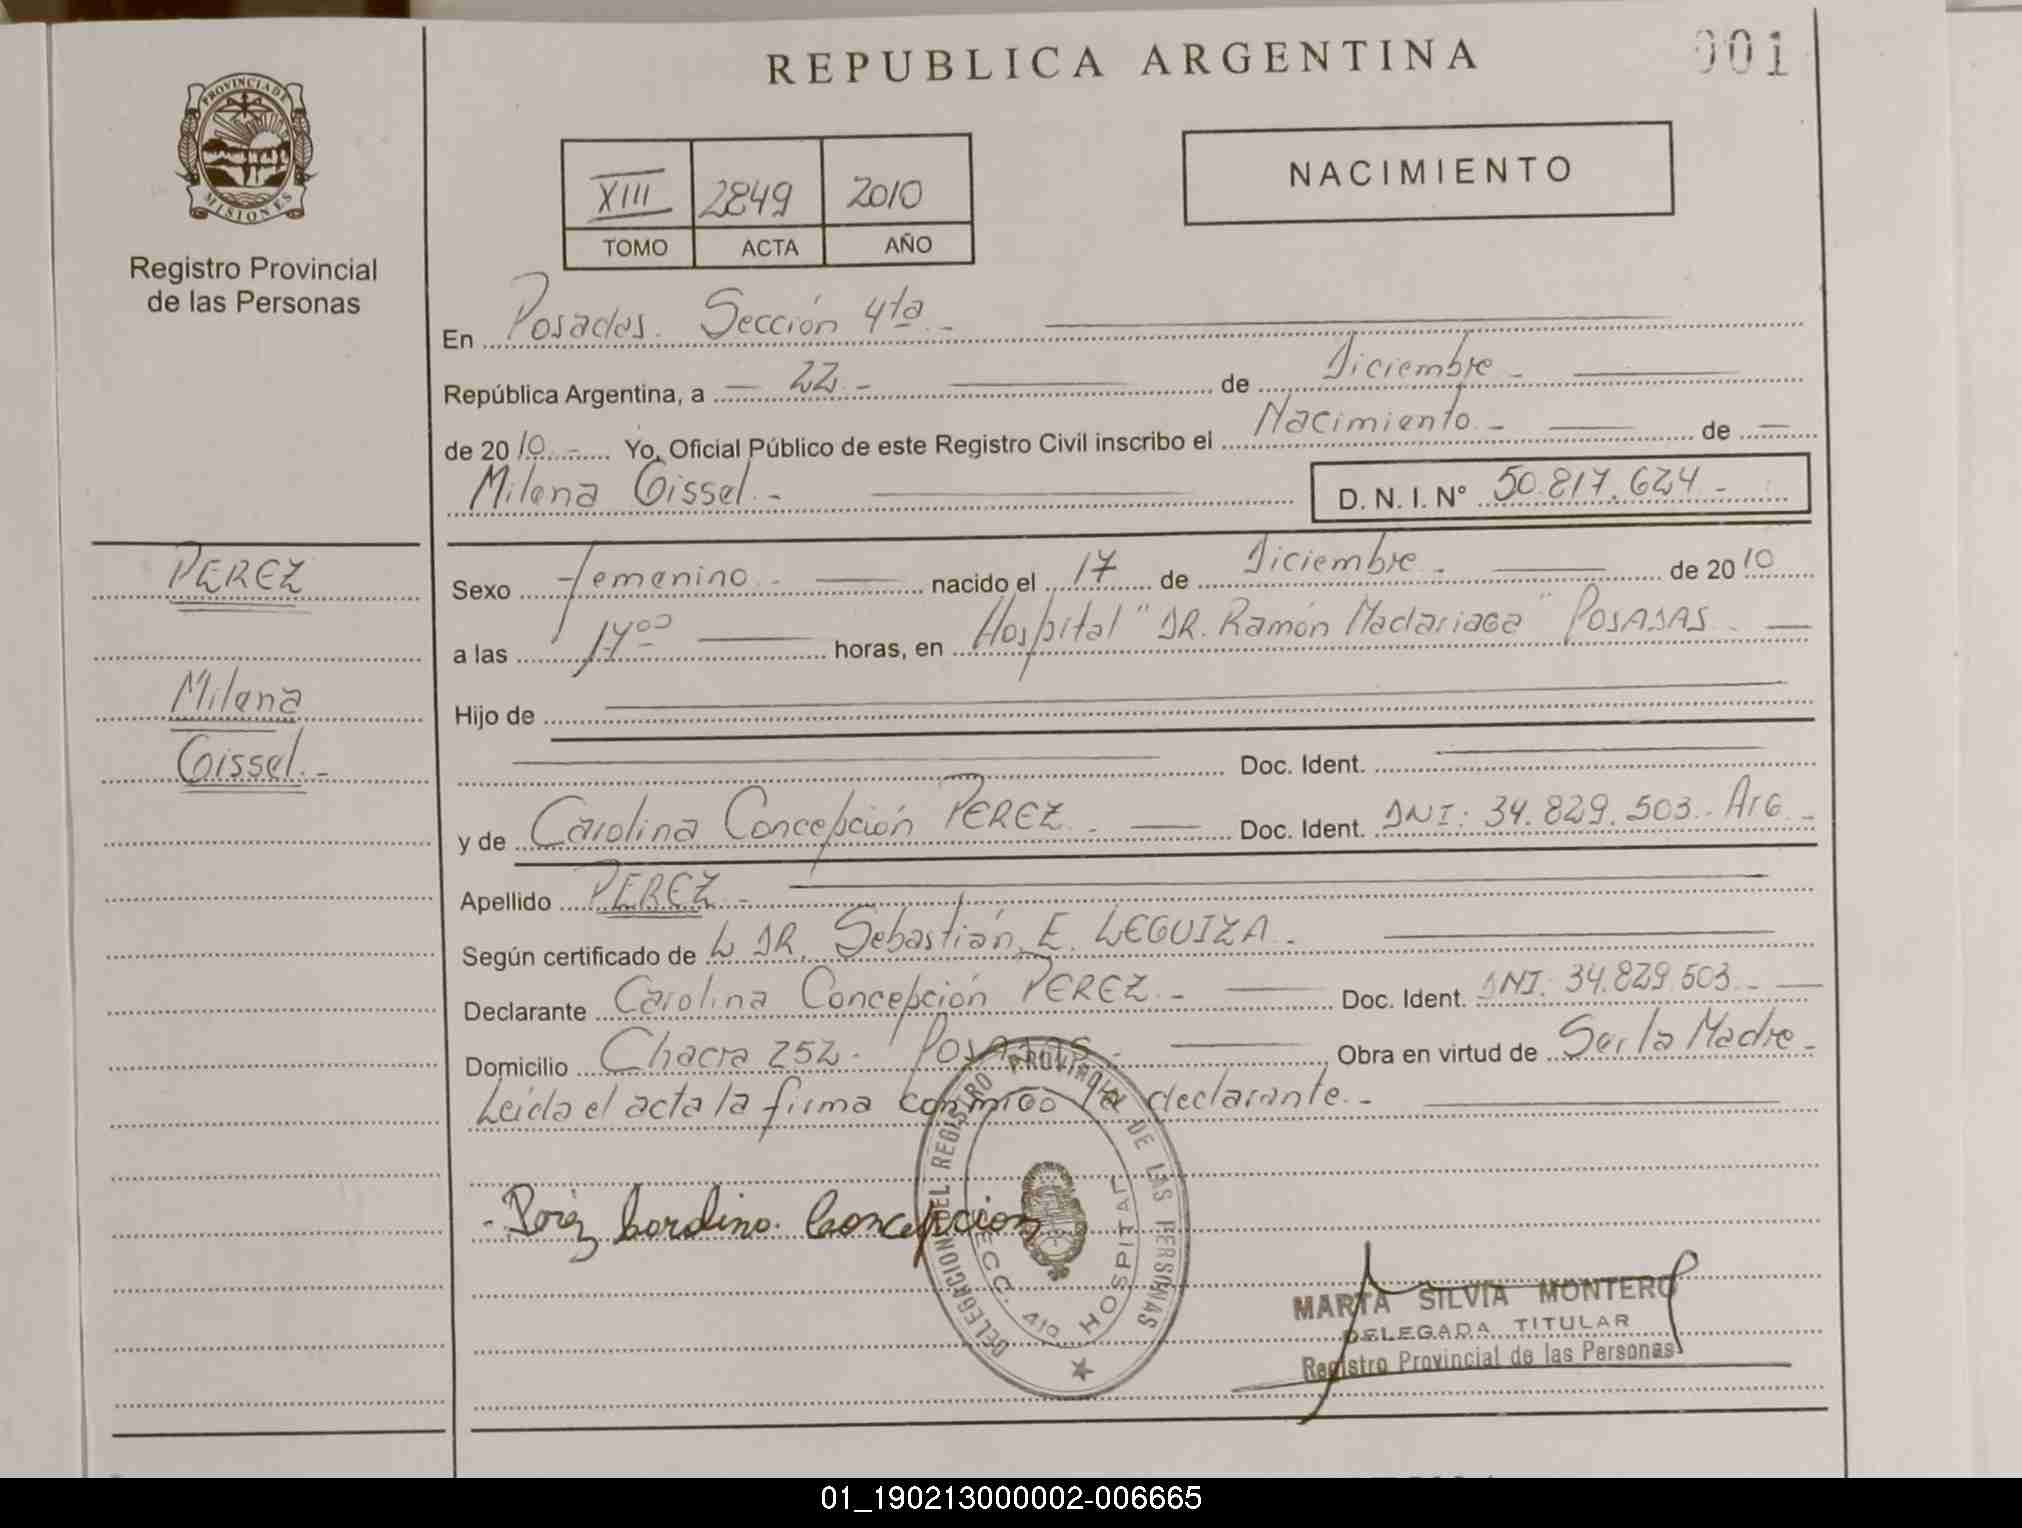 REPUBLICA ARGENTINA
001
PROVINCIA DE MISIONES
Registro Provincial
de las Personas
XIII 2849 2010
TOMO ACTA AÑO
NACIMIENTO
En Posadas. Sección 4ta -
República Argentina, a - 22 - de Diciembre -
de 2010 - Yo, Oficial Público de este Registro Civil inscribo el Nacimiento - de -
Milena Gissel. - D. N. I. N° 50.817.624 -
PEREZ
Milena
Gissel. -
Sexo femenino - nacido el 17 de Diciembre - de 2010
a las 14:00 horas, en Hospital "DR. Ramón Madariaga" POSADAS -
Hijo de
Doc. Ident.
y de Carolina Concepción PEREZ - Doc. Ident. DNI: 34.829.503 - Arg -
Apellido PEREZ -
Según certificado de DR. Sebastián E. LEGUIZA -
Declarante Carolina Concepción PEREZ - Doc. Ident. DNI: 34.829.503 -
Domicilio Chacra 252 - Posadas - Obra en virtud de Ser la Madre -
Leída el acta la firma conmigo la declarante. -
Concepcion
DELEGACION DEL REGISTRO PROVINCIAL DE LAS PERSONAS
SECC. 4ta HOSPITAL
MARTA SILVIA MONTERO
DELEGADA TITULAR
Registro Provincial de las Personas
01_190213000002-006665